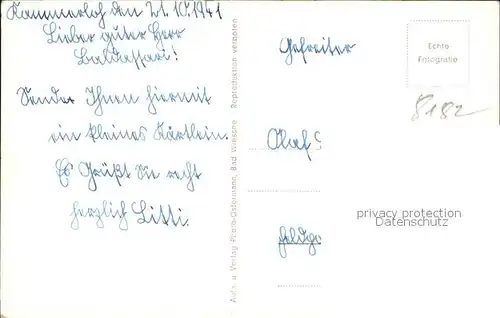 Kammerloh den 21.10.1941
Lieber guter Herr
Baldassari!
Sende Ihnen hiermit
ein kleines Kärtlein.
Es Grüßt Sie recht
herzlich Litti.
Aufn. u. Verlag Photo-Ostermann, Bad Wiessee Reproduktion verboten
Gefreiter
Echte
Fotografie
8182
Olaf
privacy protection
Datenschutz